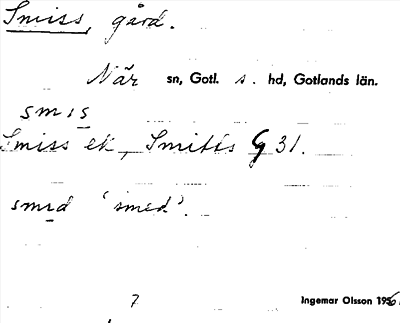 Smiss, gård.
När sn, Gotl. s. hd, Gotlands län.
smıs
Smiss ek, Smitts G 31.
smıd 'smed'.
7
Ingemar Olsson 1956